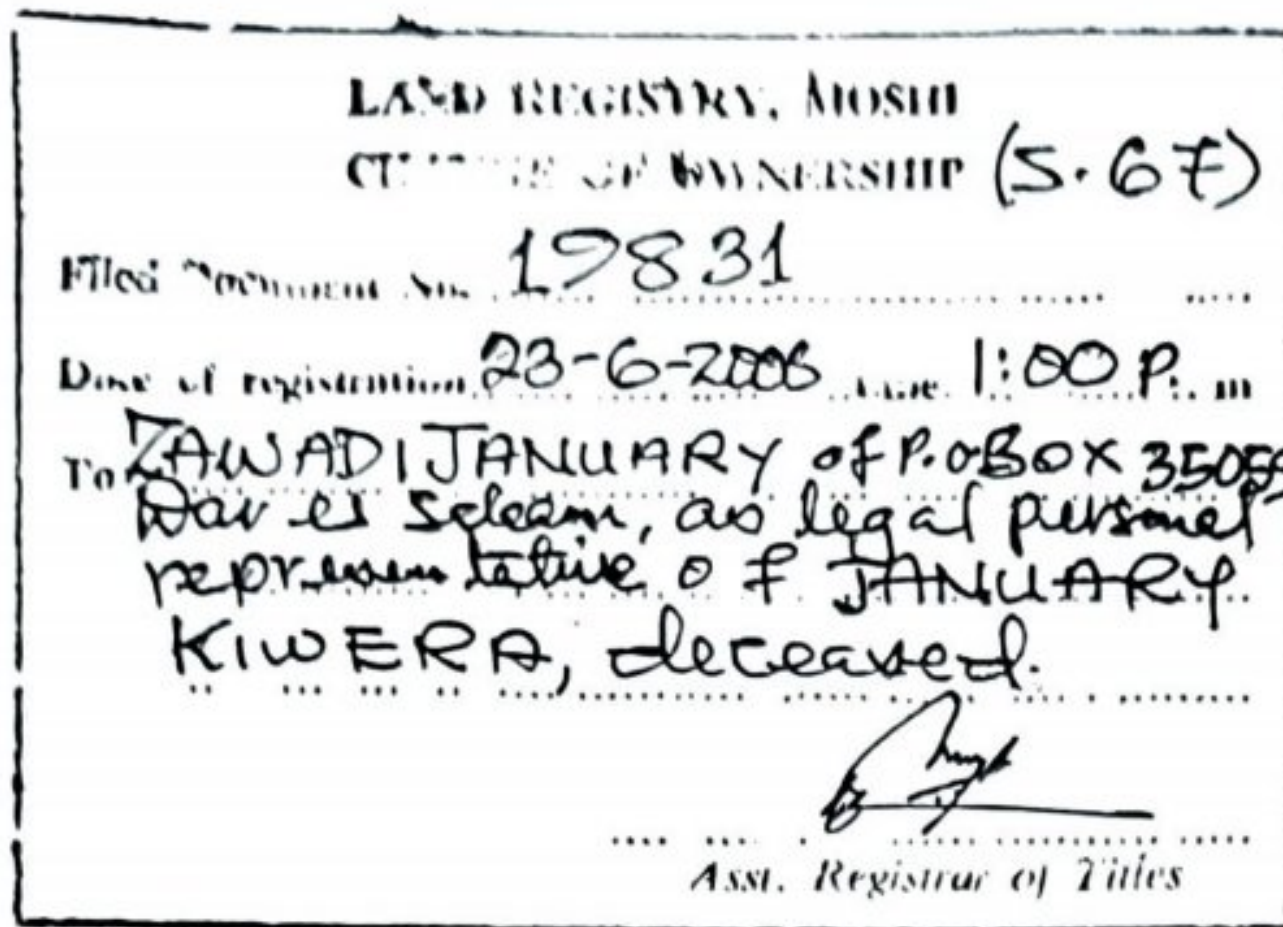 LAND REGISTRY, MOSHI
OF OWNERSHIP (S.67)
Filed Document No. 19831
Date of registration 23-6-2006 time 1:00 P. m
To ZAWADI JANUARY of P.O BOX 35059
Dar es salaam, as legal personel
representative of JANUARY
KIWERA, deceased.
Asst. Registrar of Titles